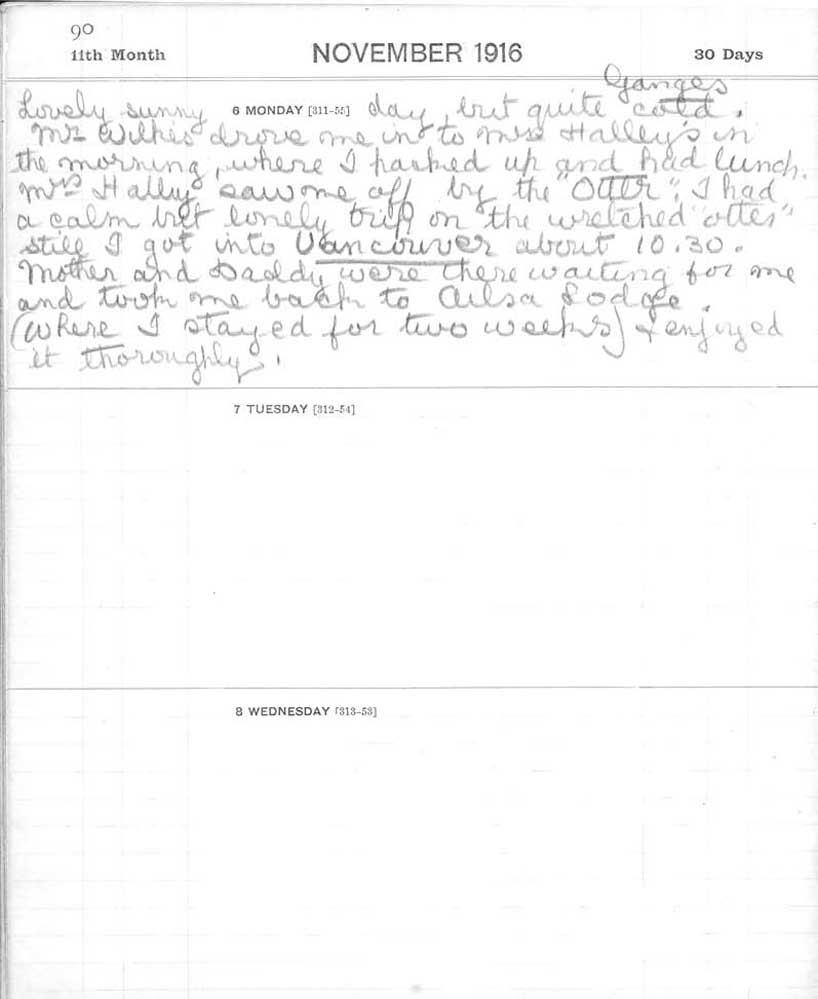 90
11th Month NOVEMBER 1916 30 Days
Ganges
Lovely sunny 6 MONDAY [311-55] day, but quite cold.
Mr Wilkes drove me in to Mrs Halley's in
the morning, where I packed up and had lunch.
Mrs Halley saw me off by the "Otter". I had
a calm but lonely trip on the wretched "otter"
still I got into Vancouver about 10.30.
Mother and Daddy were there waiting for me
and took me back to Ailsa Lodge.
(where I stayed for two weeks) & enjoyed
it thoroughly.
7 TUESDAY [312-54]
8 WEDNESDAY [313-53]